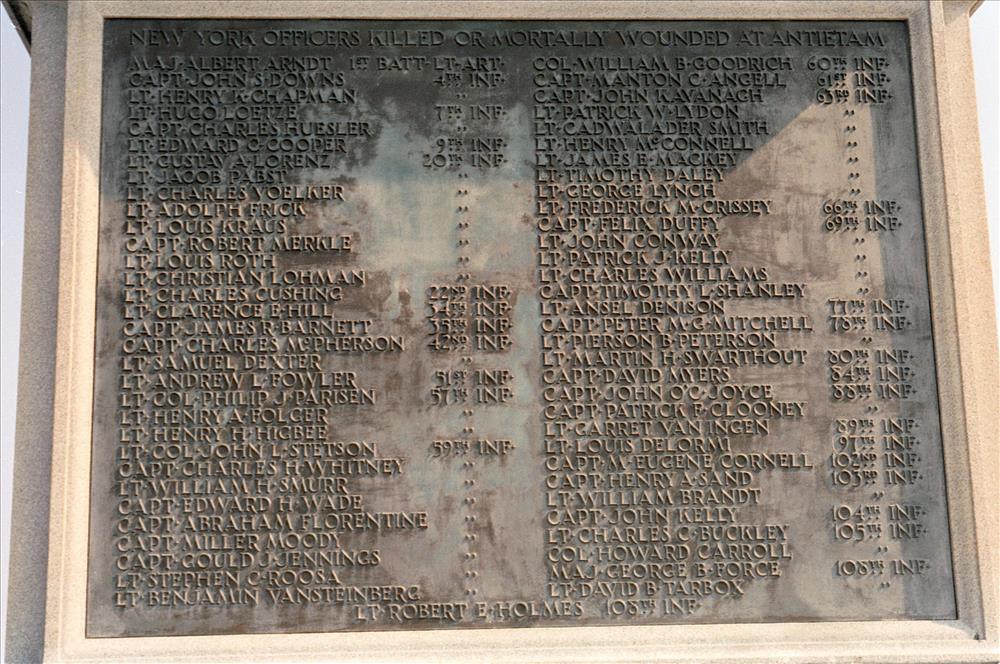 NEW YORK OFFICERS KILLED OR MORTALLY WOUNDED AT ANTIETAM
MAJ·ALBERT ARNDT 1ST BATT·LT·ART·
CAPT·JOHN S·DOWNS 4TH INF·
LT·HENRY K·CHAPMAN "
LT·HUGO LOETZE 7TH INF·
CAPT·CHARLES HUESLER "
LT·EDWARD C·COOPER 9TH INF·
LT·GUSTAV A·LORENZ 20TH INF·
LT·JACOB PABST "
LT·CHARLES VOELKER "
LT·ADOLPH FRICK "
LT·LOUIS KRAUS "
CAPT·ROBERT MERKLE "
LT·LOUIS ROTH "
LT·CHRISTIAN LOHMAN "
LT·CHARLES CUSHING 22ND INF·
LT·CLARENCE E·HILL 34TH INF·
CAPT·JAMES R·BARNETT 35TH INF·
CAPT·CHARLES MCPHERSON 42ND INF·
LT·SAMUEL DEXTER "
LT·ANDREW L·FOWLER 51ST INF·
LT·COL·PHILIP J·PARISEN 57TH INF·
LT·HENRY A·FOLGER "
LT·HENRY H·HIGBEE "
LT·COL·JOHN L·STETSON 59TH INF·
CAPT·CHARLES H·WHITNEY "
LT·WILLIAM H·SMURR "
CAPT·EDWARD H·WADE "
CAPT·ABRAHAM FLORENTINE "
CAPT·MILLER MOODY "
CAPT·GOULD J·JENNINGS "
LT·STEPHEN C·ROOSA "
LT·BENJAMIN VANSTEINBERG "
COL·WILLIAM B·GOODRICH 60TH INF·
CAPT·MANTON C·ANGELL 61ST INF·
CAPT·JOHN KAVANAGH 63RD INF·
LT·PATRICK W·LYDON "
LT·CADWALADER SMITH "
LT·HENRY MCCONNELL "
LT·JAMES E·MACKEY "
LT·TIMOTHY DALEY "
LT·GEORGE LYNCH "
LT·FREDERICK M·CRISSEY 66TH INF·
CAPT·FELIX DUFFY 69TH INF·
LT·JOHN CONWAY "
LT·PATRICK J·KELLY "
LT·CHARLES WILLIAMS "
CAPT·TIMOTHY L·SHANLEY "
LT·ANSEL DENISON 77TH INF·
CAPT·PETER M·G·MITCHELL 78TH INF·
LT·PIERSON B·PETERSON "
LT·MARTIN H·SWARTHOUT 80TH INF·
CAPT·DAVID MYERS 84TH INF·
CAPT·JOHN O'C·JOYCE 88TH INF·
CAPT·PATRICK F·CLOONEY "
LT·GARRET VAN INGEN 89TH INF·
LT·LOUIS DELORMI 97TH INF·
CAPT·M·EUGENE CORNELL 102ND INF·
CAPT·HENRY A·SAND 103RD INF·
LT·WILLIAM BRANDT "
CAPT·JOHN KELLY 104TH INF·
LT·CHARLES C·BUCKLEY 105TH INF·
COL·HOWARD CARROLL "
MAJ·GEORGE B·FORCE 108TH INF·
LT·DAVID B·TARBOX "
LT·ROBERT E·HOLMES 108TH INF·